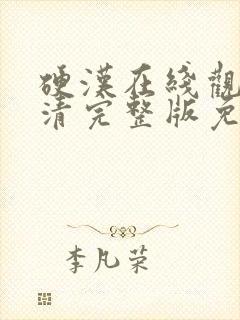 硬漢在綫觀
清完整版免
李凡荣